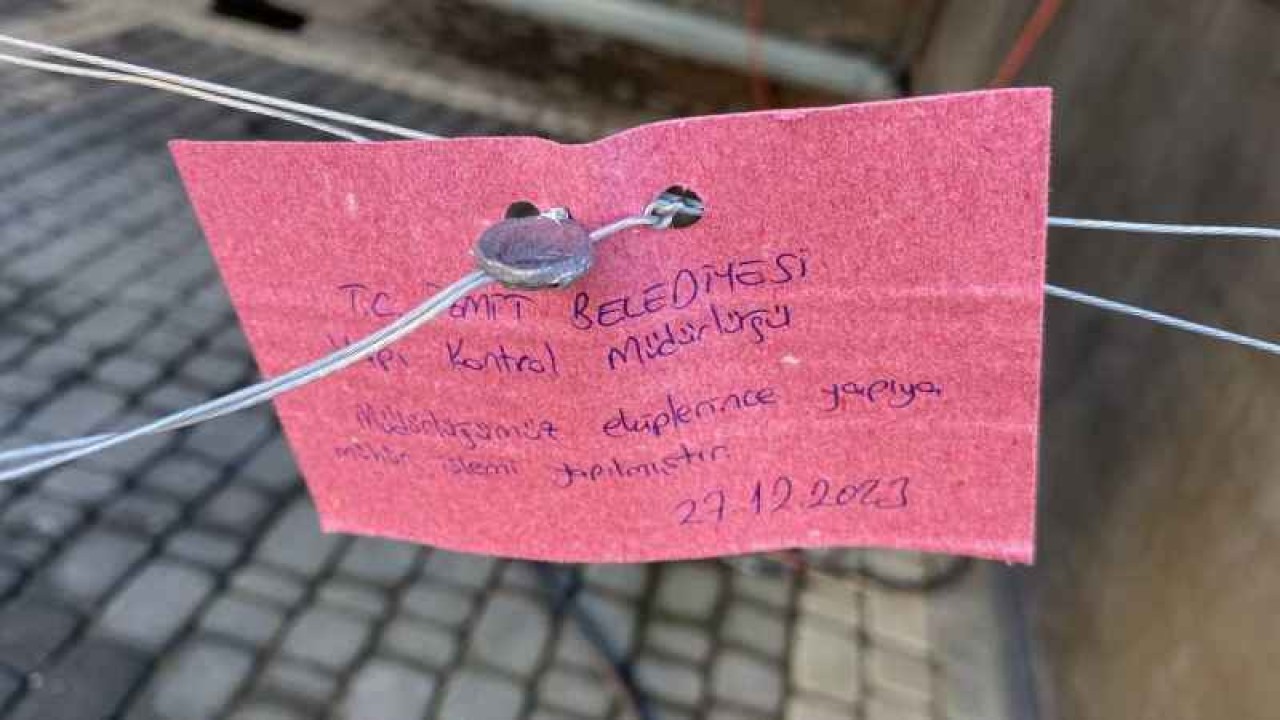 T.C İZMİT BELEDİYESİ
Yapı Kontrol Müdürlüğü
Müdürlüğümüz ekiplerince yapıya
mühür işlemi yapılmıştır.
27.12.2023